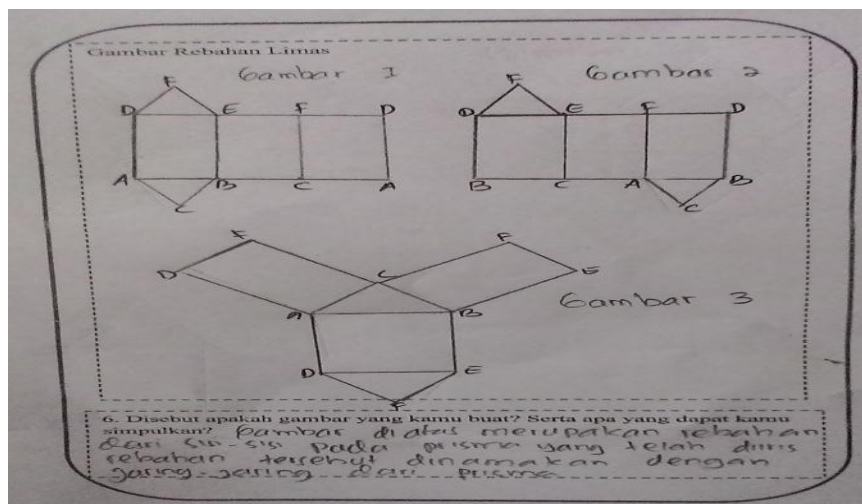 Gambar Rebahan Limas
Gambar 1
Gambar 2
F
F
D E F D
D E F D
A B C A
B C A B
C
C
F
F
D
C
E
A
B
Gambar 3
D
E
F
6. Disebut apakah gambar yang kamu buat? Serta apa yang dapat kamu
simpulkan? Gambar di atas merupakan rebahan
dari sisi-sisi pada prisma yang telah diiris
rebahan tersebut dinamakan dengan
jaring-jaring dari prisma